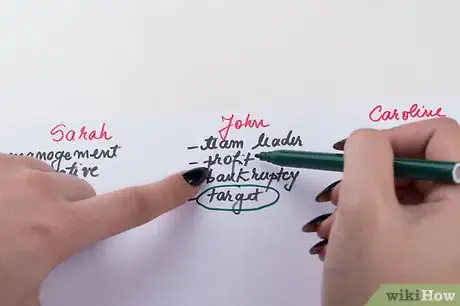 Sarah
management
John
- team leader
- profit
- bankruptcy
- target
Caroline
wikiHow